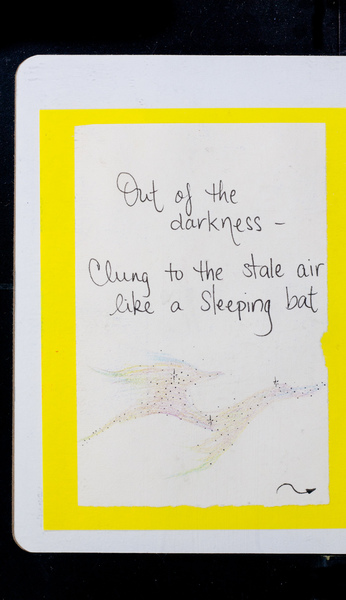 Out of the
darkness -
Clung to the stale air
like a sleeping bat